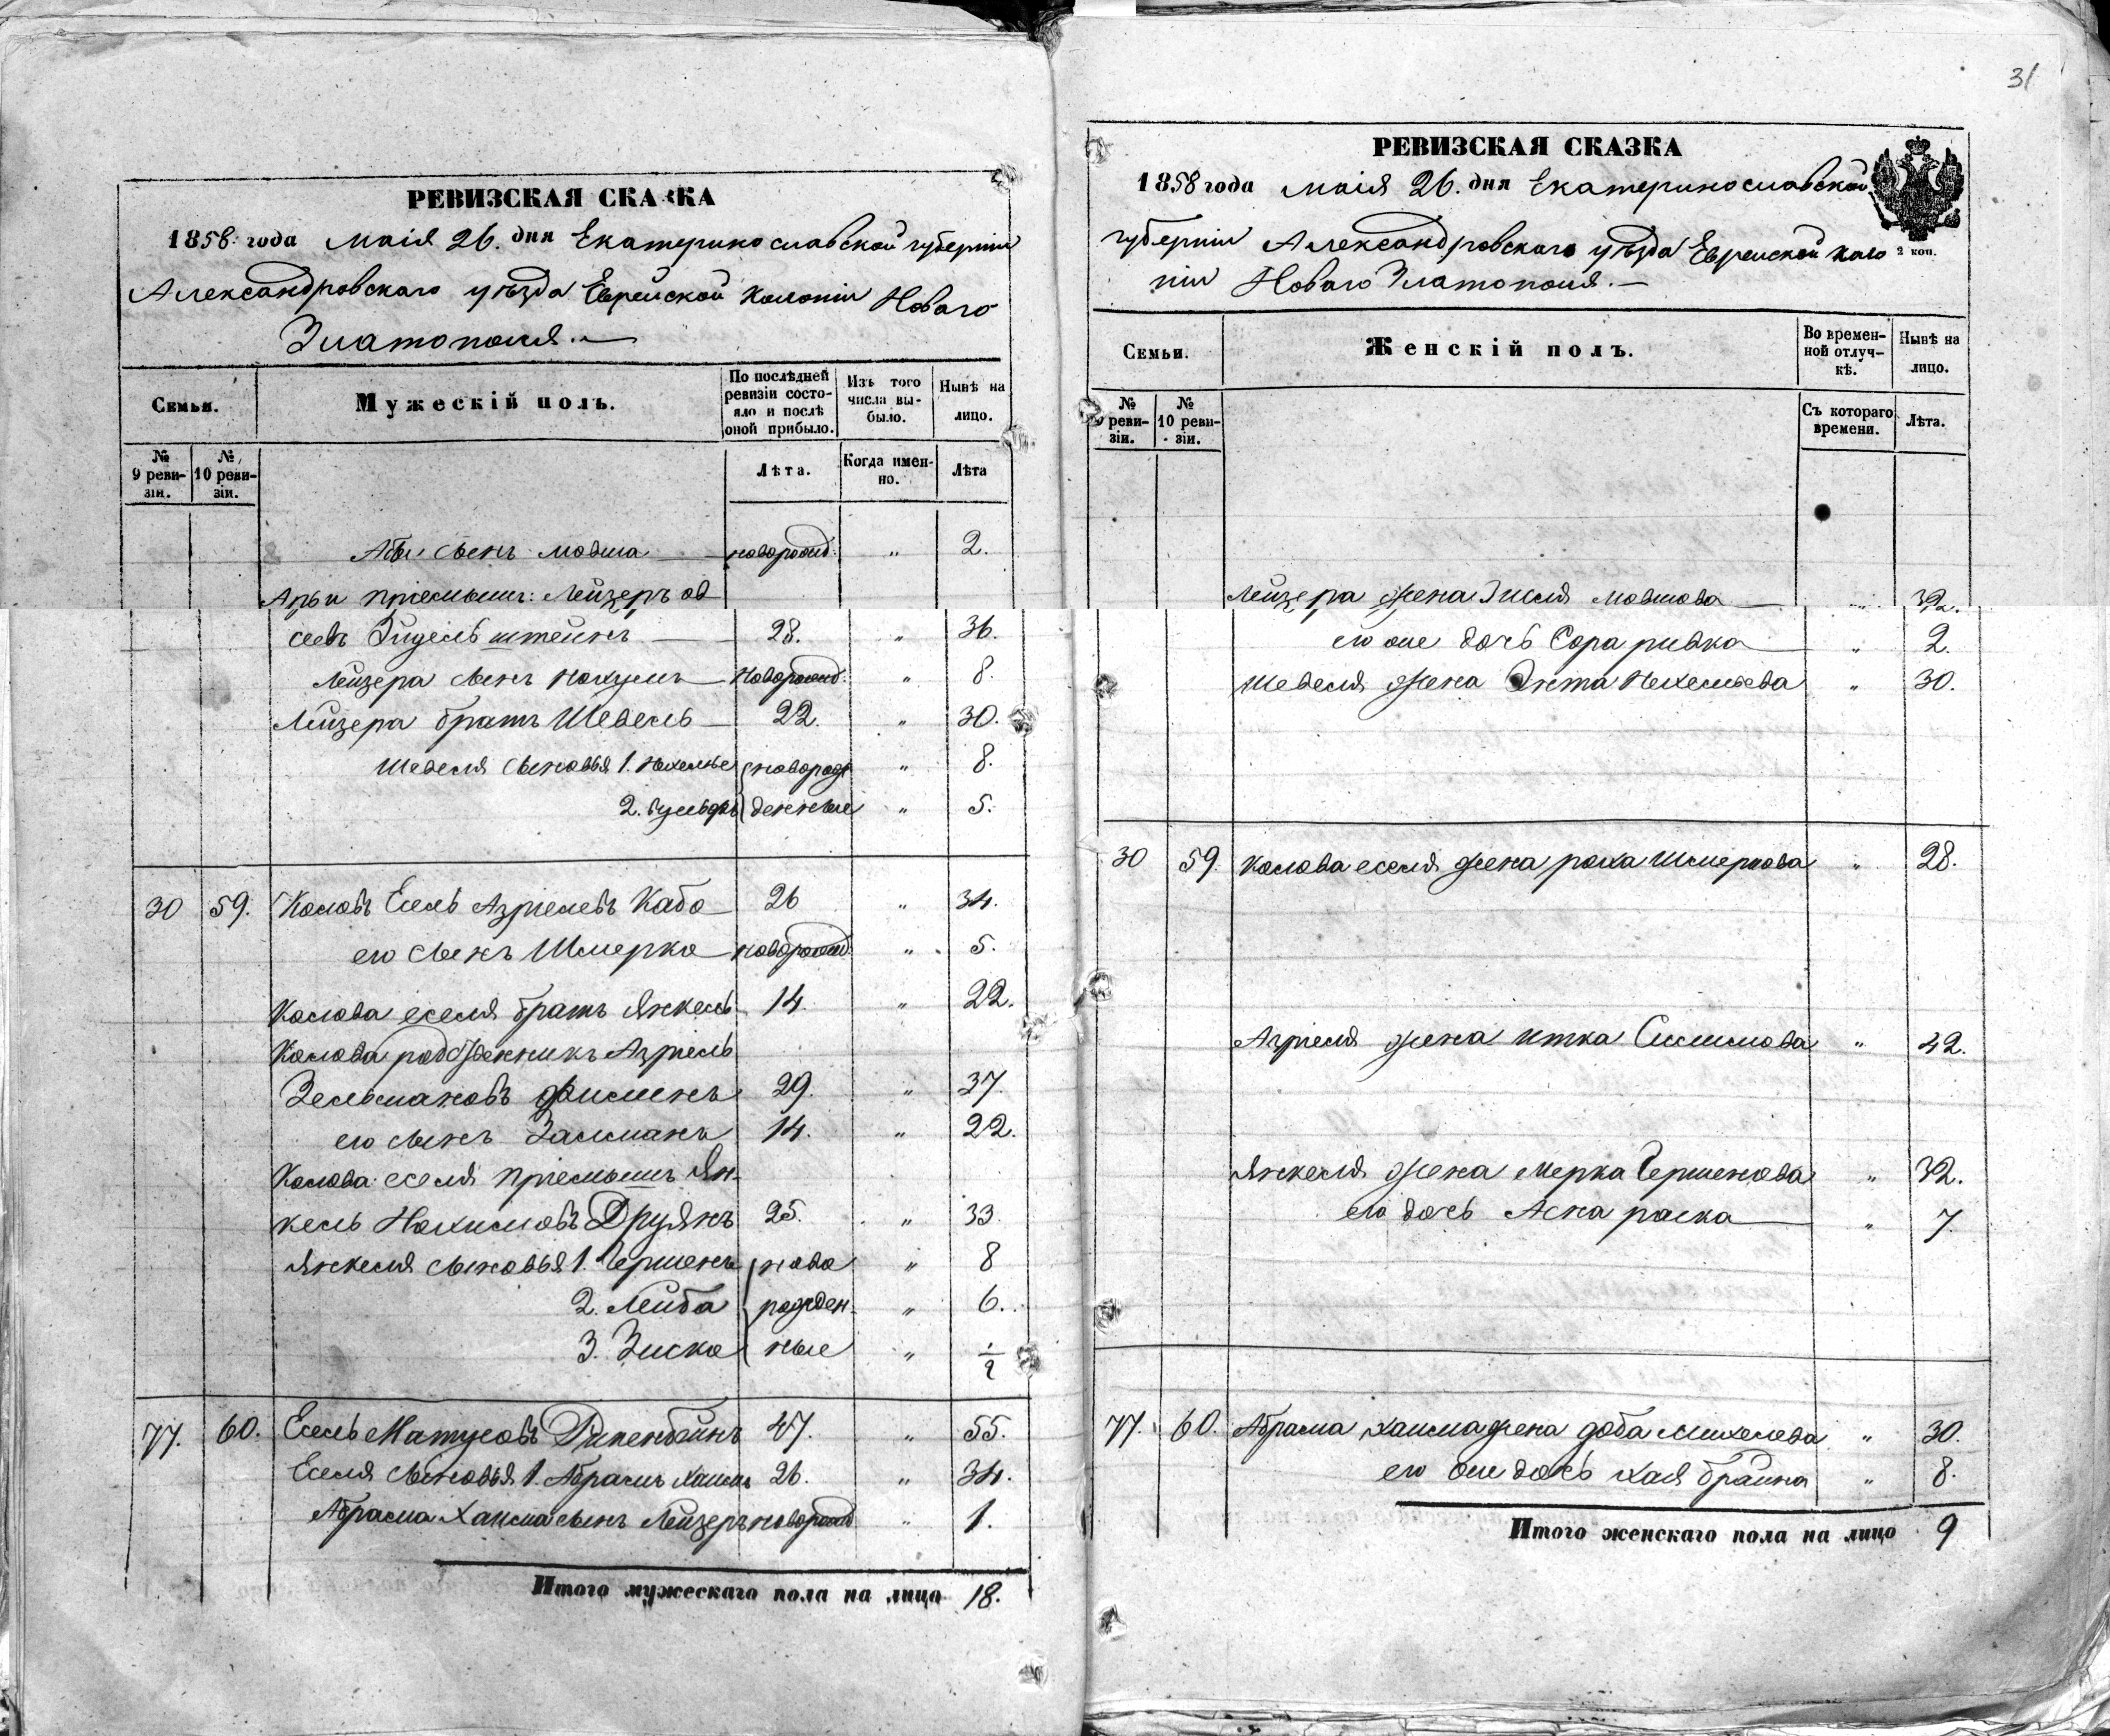 31
РЕВИЗСКАЯ СКАЗКА
1858 года Маія 26. дня Екатеринославской губерніи
Александровскаго уѣзда Еврейской Колоніи Новаго
Златополя.
Семьи.
Мужескій полъ.
По послѣдней ревизіи состояло и послѣ оной прибыло.
Изъ того числа выбыло.
Нынѣ на лицо.
№ 9 ревизіи.
№ 10 ревизіи.
Лѣта.
Когда именно.
Лѣта
сынъ Мовша новорожд. " 2.
Арьи пріемышъ: Лейзеръ ов
сеевъ штейнъ 28. " 36.
Лейзера сынъ Нохумъ новорожд. " 8.
Лейзера братъ Шевель 22. " 30.
Шевеля сыновья 1. новорож " 8.
2. денные " 5.
30 59. Коловъ Есель Азріелевъ Кабо 26 " 34.
его сынъ Шмерко новорожд. " 5.
Колова еселя братъ Янкель 14. " 22.
Колова родственникъ Азріель
Зельмановъ 29. " 37.
его сынъ Залманъ 14. " 22.
Колова еселя пріемышъ Ян-
кель Нохимовъ Друянъ 25. " 33.
Янкеля сыновья 1. Гершенъ ново " 8
2. Лейба рожден- " 6.
3. Зиско ные " 1/2
77. 60. Есель Матусовъ 47. " 55.
Еселя сыновья 1. Абрамъ Хаимъ 26. " 34.
Абрама Хаима сынъ Лейзеръ новорожд " 1.
Итого мужескаго пола на лицо 18.
РЕВИЗСКАЯ СКАЗКА
1858 года Маія 26. дня Екатеринославской
губерніи Александровскаго уѣзда Еврейской коло
ніи Новаго Златополя.
2 коп.
Семьи.
Женскій полъ.
Во временной отлучкѣ.
Нынѣ на лицо.
№ 9 ревизіи.
№ 10 ревизіи.
Съ котораго времени.
Лѣта.
Лейзера жена Мовшова " 32.
его же дочь Сора ривка " 2.
Шевеля жена " 30.
30 59. Колова еселя жена роха Шмеркова " 28.
Азріеля жена итка " 42.
Янкеля жена мерка Гершенова " 32.
его дочь раска " 7.
77. 60. Абрама хаима жена доба Михелева " 30.
его же дочь хая брайна " 8.
Итого женскаго пола на лицо 9